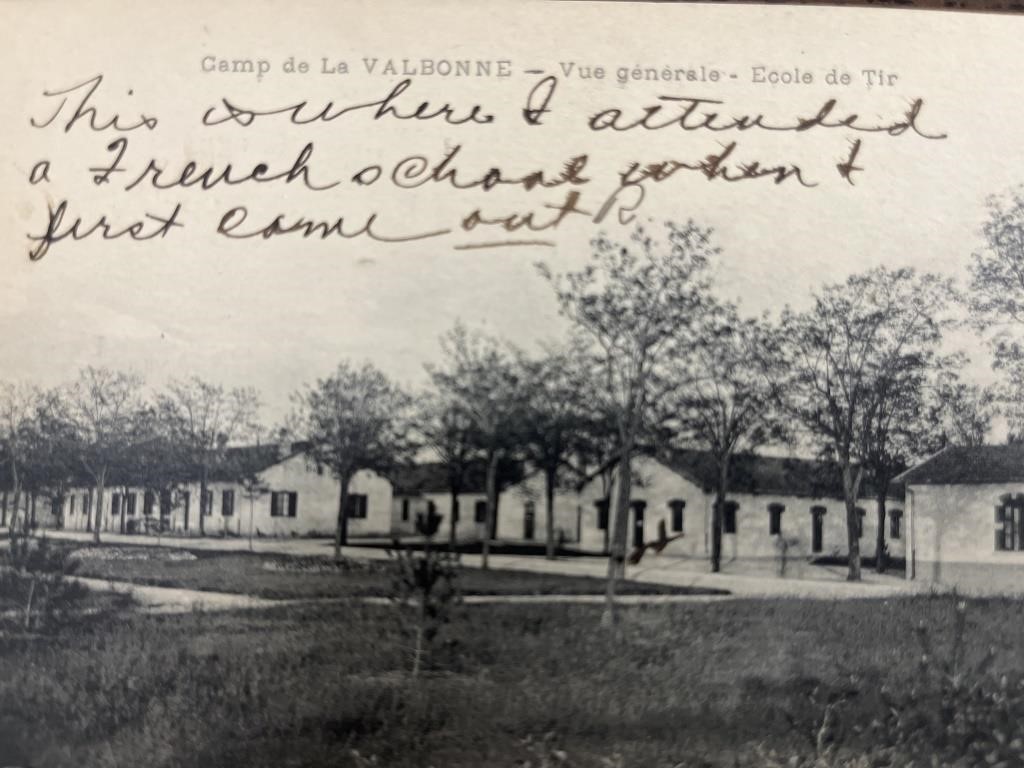 Camp de La VALBONNE — Vue générale - Ecole de Tir
This is where I attended
a French school when I
first came out R.